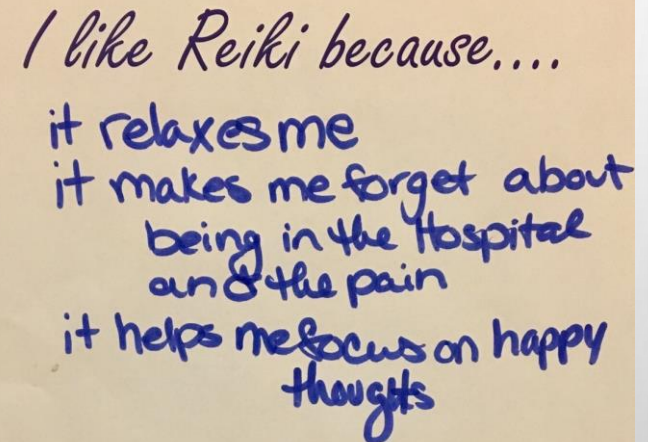 I like Reiki because....
it relaxes me
it makes me forget about
being in the Hospital
and the pain
it helps me focus on happy
thougts